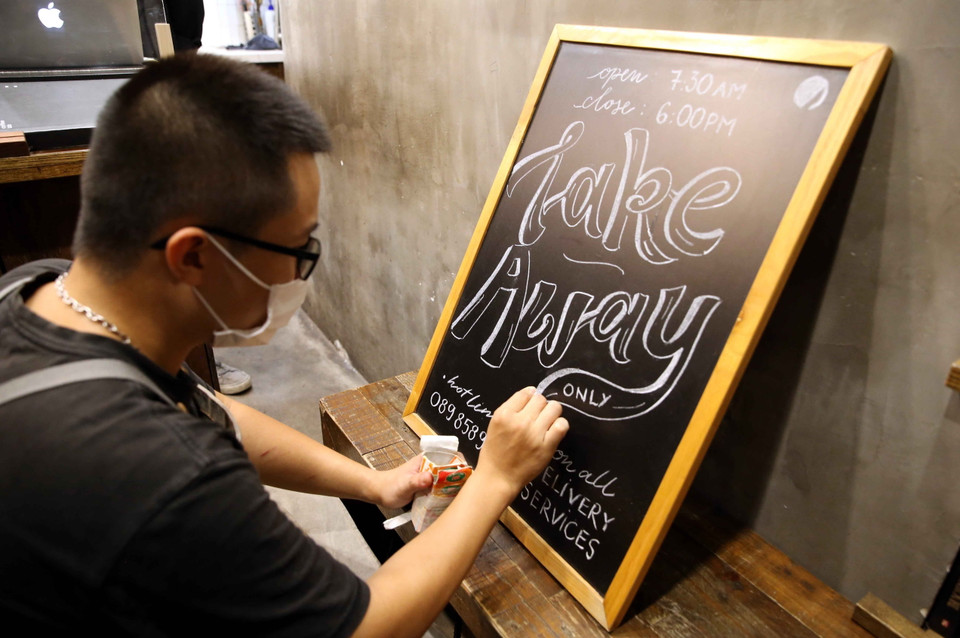 open : 7.30 AM
close : 6:00PM
Take
Away
ONLY
. hotlin
0898589
on all
DELIVERY
SERVICES